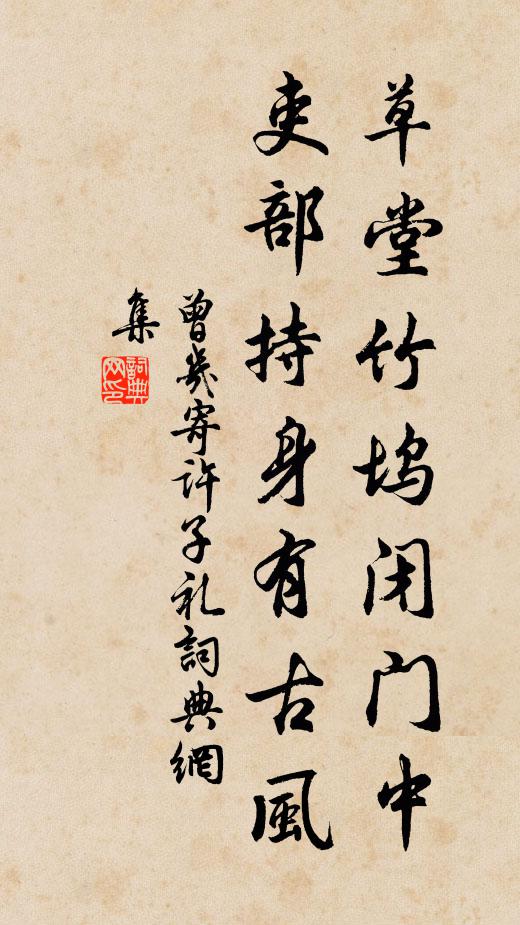 草堂竹坞闭门中
吏部持身有古風
曾几寄许子礼詞典網
集
詞典网印